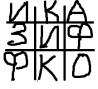 И К А
З И Ф
Ф К О